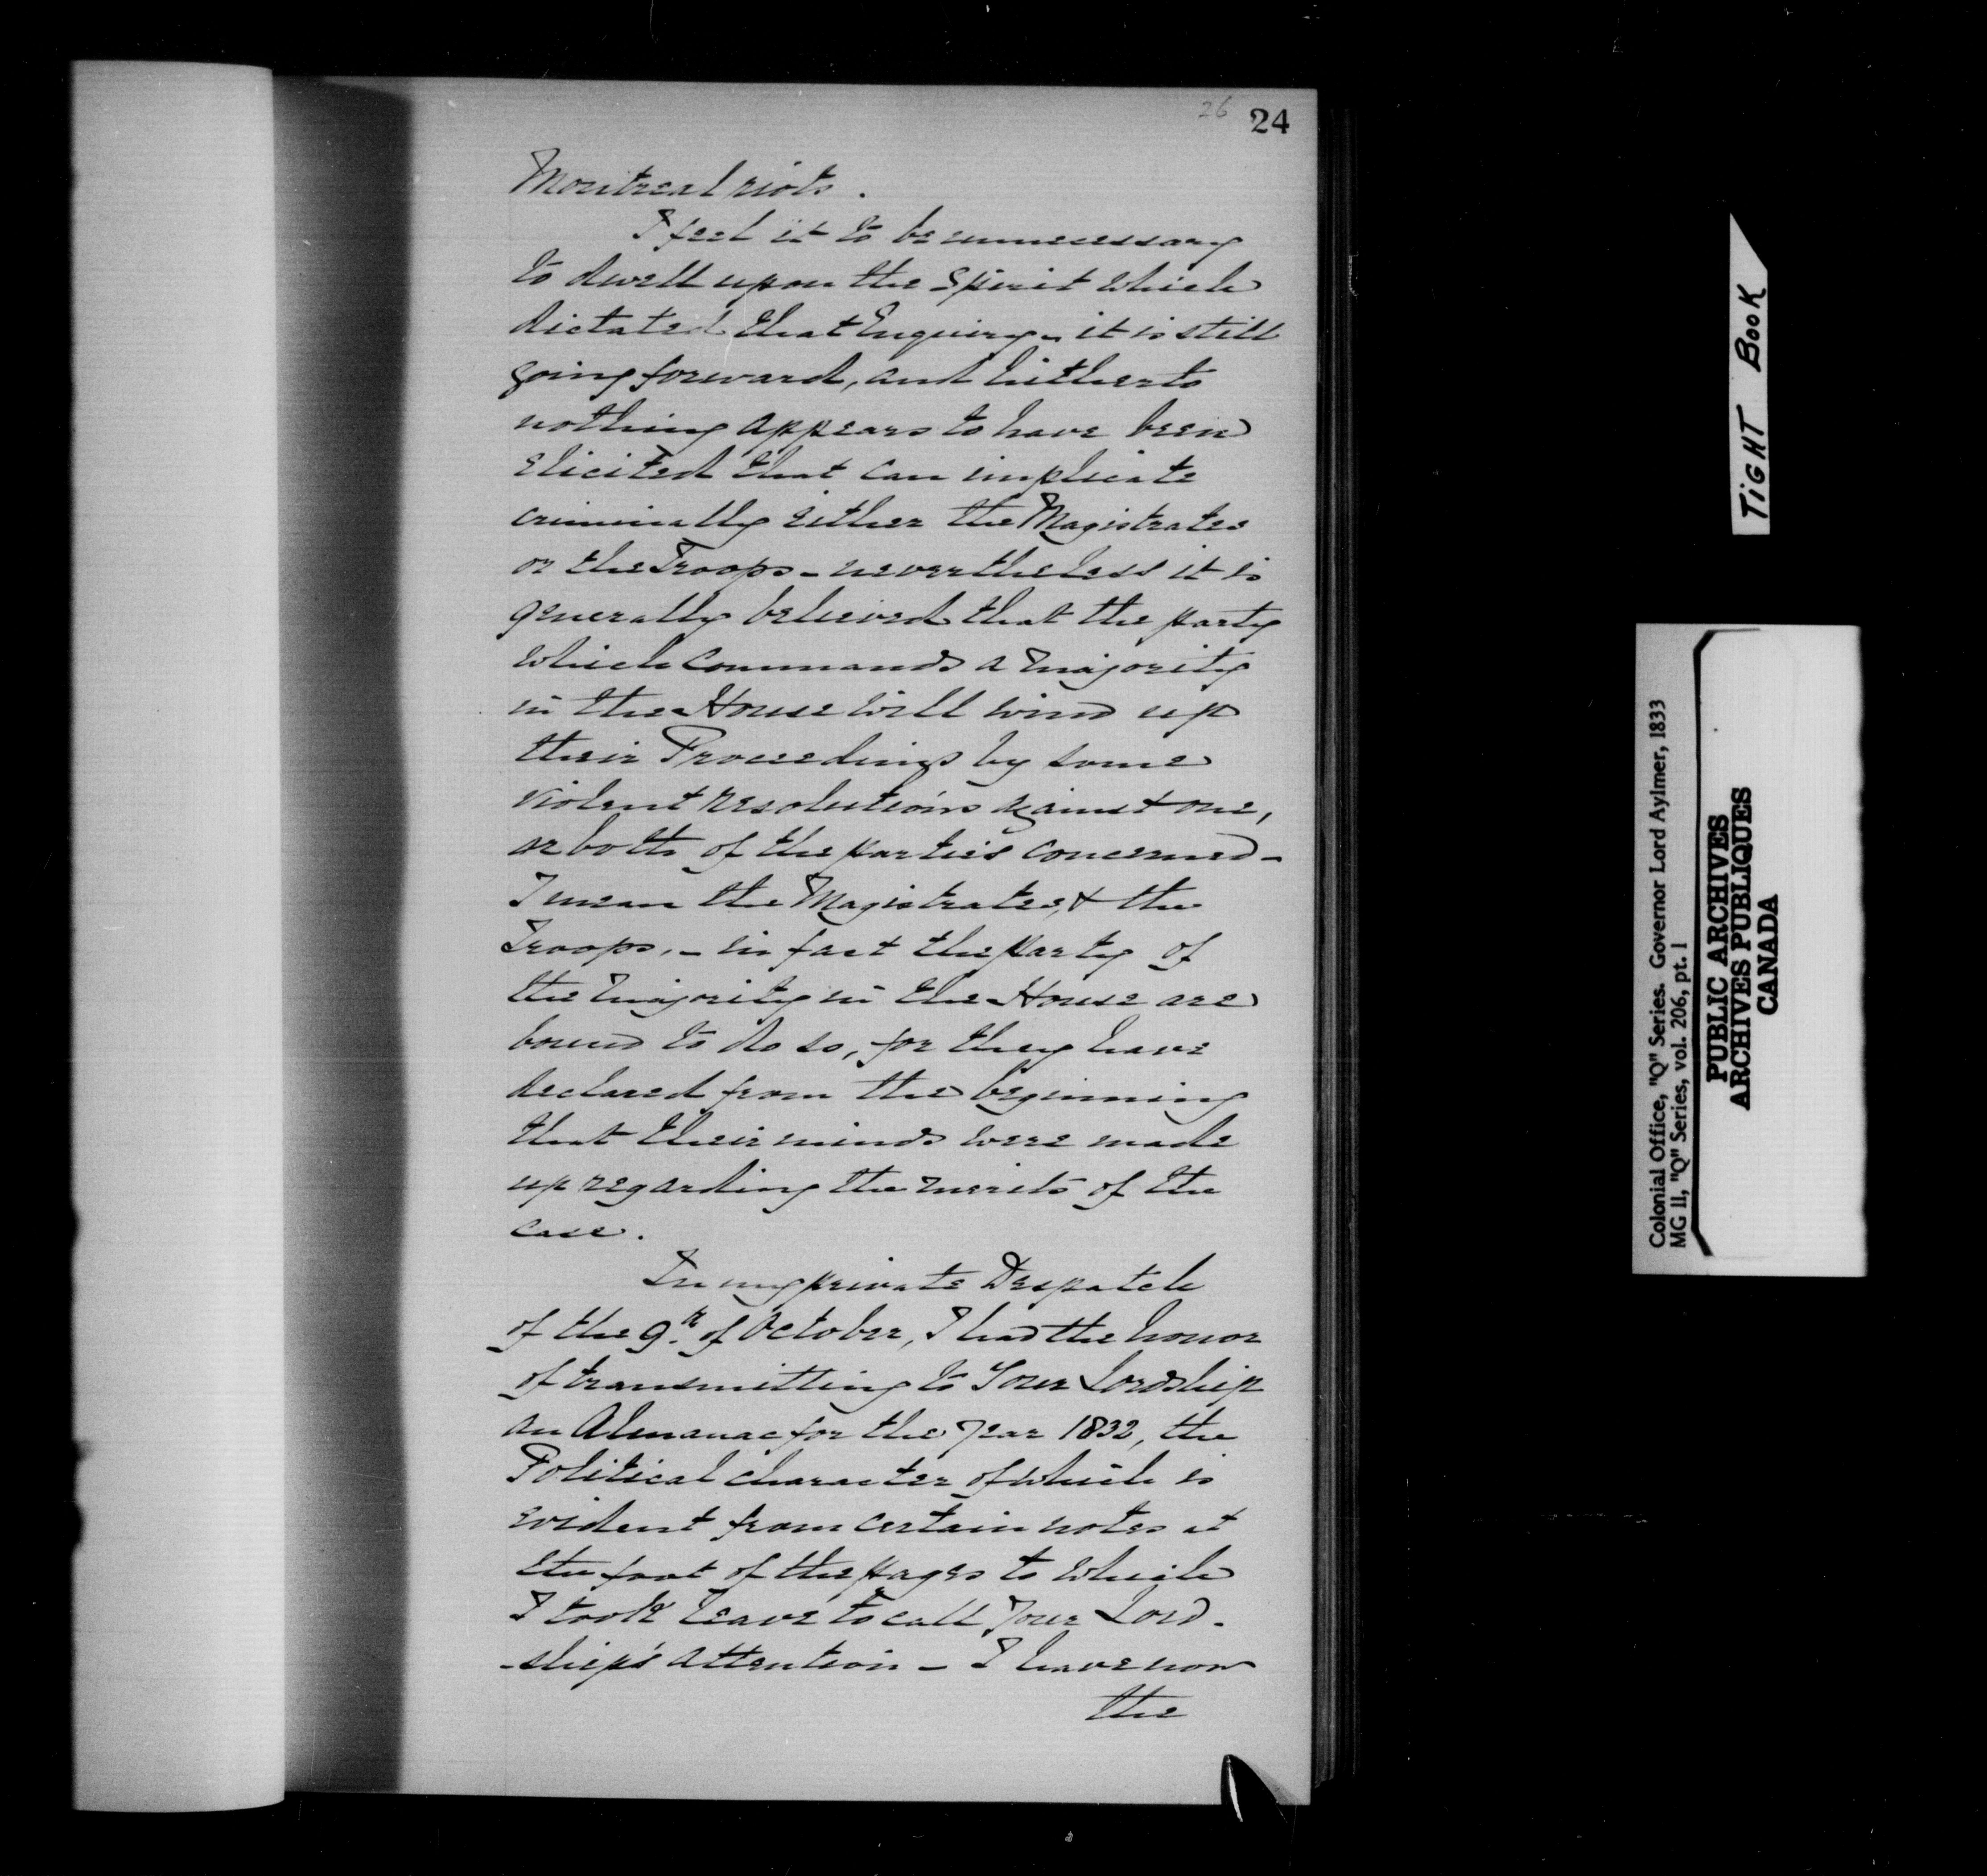 26 24
Montreal riots.
I feel it to be unnecessary
to dwell upon the Spirit which
dictated that Enquiry - it is still
going forward, and hitherto
nothing appears to have been
elicited that can implicate
criminally either the Magistrates
or the Troops - nevertheless it is
generally believed that the party
which commands a Majority
in the House will wind up
their Proceedings by some
violent resolutions against one,
or both of the parties concerned -
I mean the Magistrates, & the
Troops, - in fact the party of
the Majority in the House are
bound to do so, for they have
declared from the beginning
that their minds were made
up regarding the merits of the
case.
In my private Despatch
of the 9th. of October, I had the honor
of transmitting to Your Lordship
an Almanac for the Year 1832, the
Political character of which is
evident from certain notes at
the foot of the pages to which
I took leave to call Your Lord-
-ship's attention - I have now
the
TIGHT BOOK
Colonial Office, "Q" Series. Governor Lord Aylmer, 1833
MG 11, "Q" Series, vol. 206, pt. 1
PUBLIC ARCHIVES
ARCHIVES PUBLIQUES
CANADA